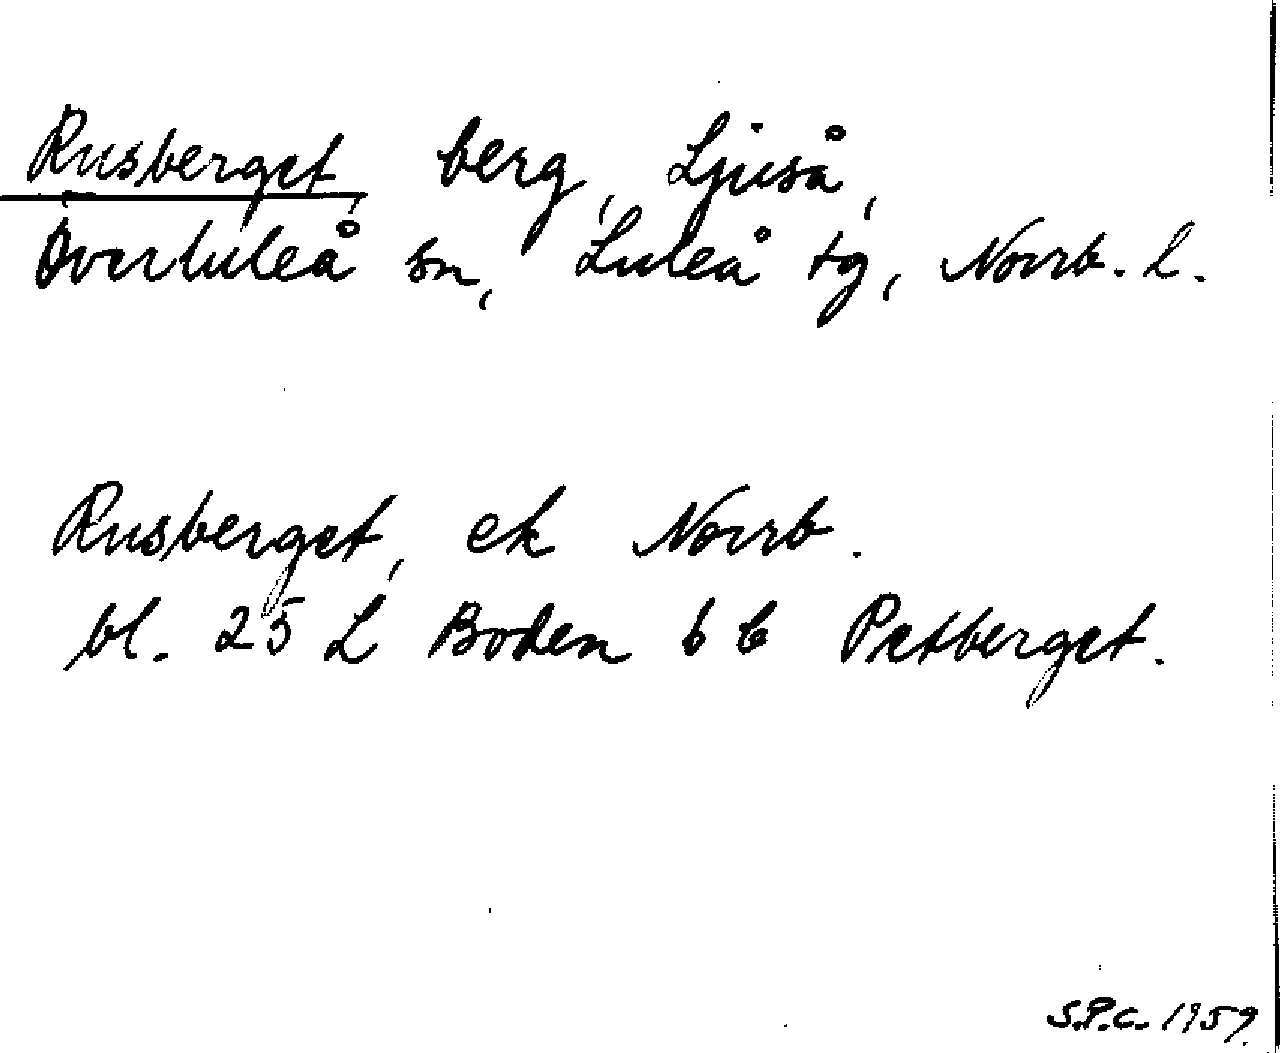 Rusberget, berg, Ljuså,
Överluleå sn, Luleå tg, Norrb. l.
Rusberget, ek Norrb.
bl. 25 L Boden 6 b Pretberget.
S.P.C. 1959.